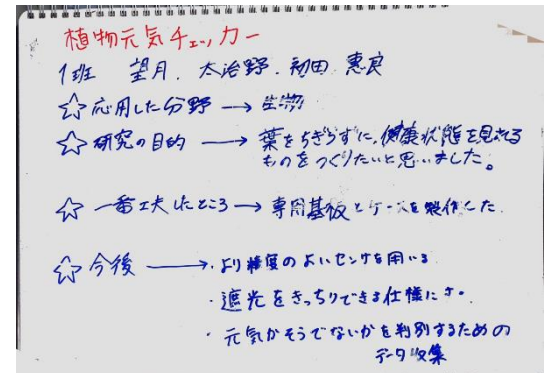 植物元気チェッカー
1班 望月. 太治野. 初田. 恵良
☆応用した分野 → 生物
☆研究の目的 → 葉をちぎらずに、健康状態を見れる
ものをつくりたいと思いました。
☆一番工夫したところ → 専用基板とケースを製作した
☆今後 → ・より精度のよいセンサを用いる
・遮光をきっちりできる仕様にする。
・元気かそうでないかを判別するための
データ収集